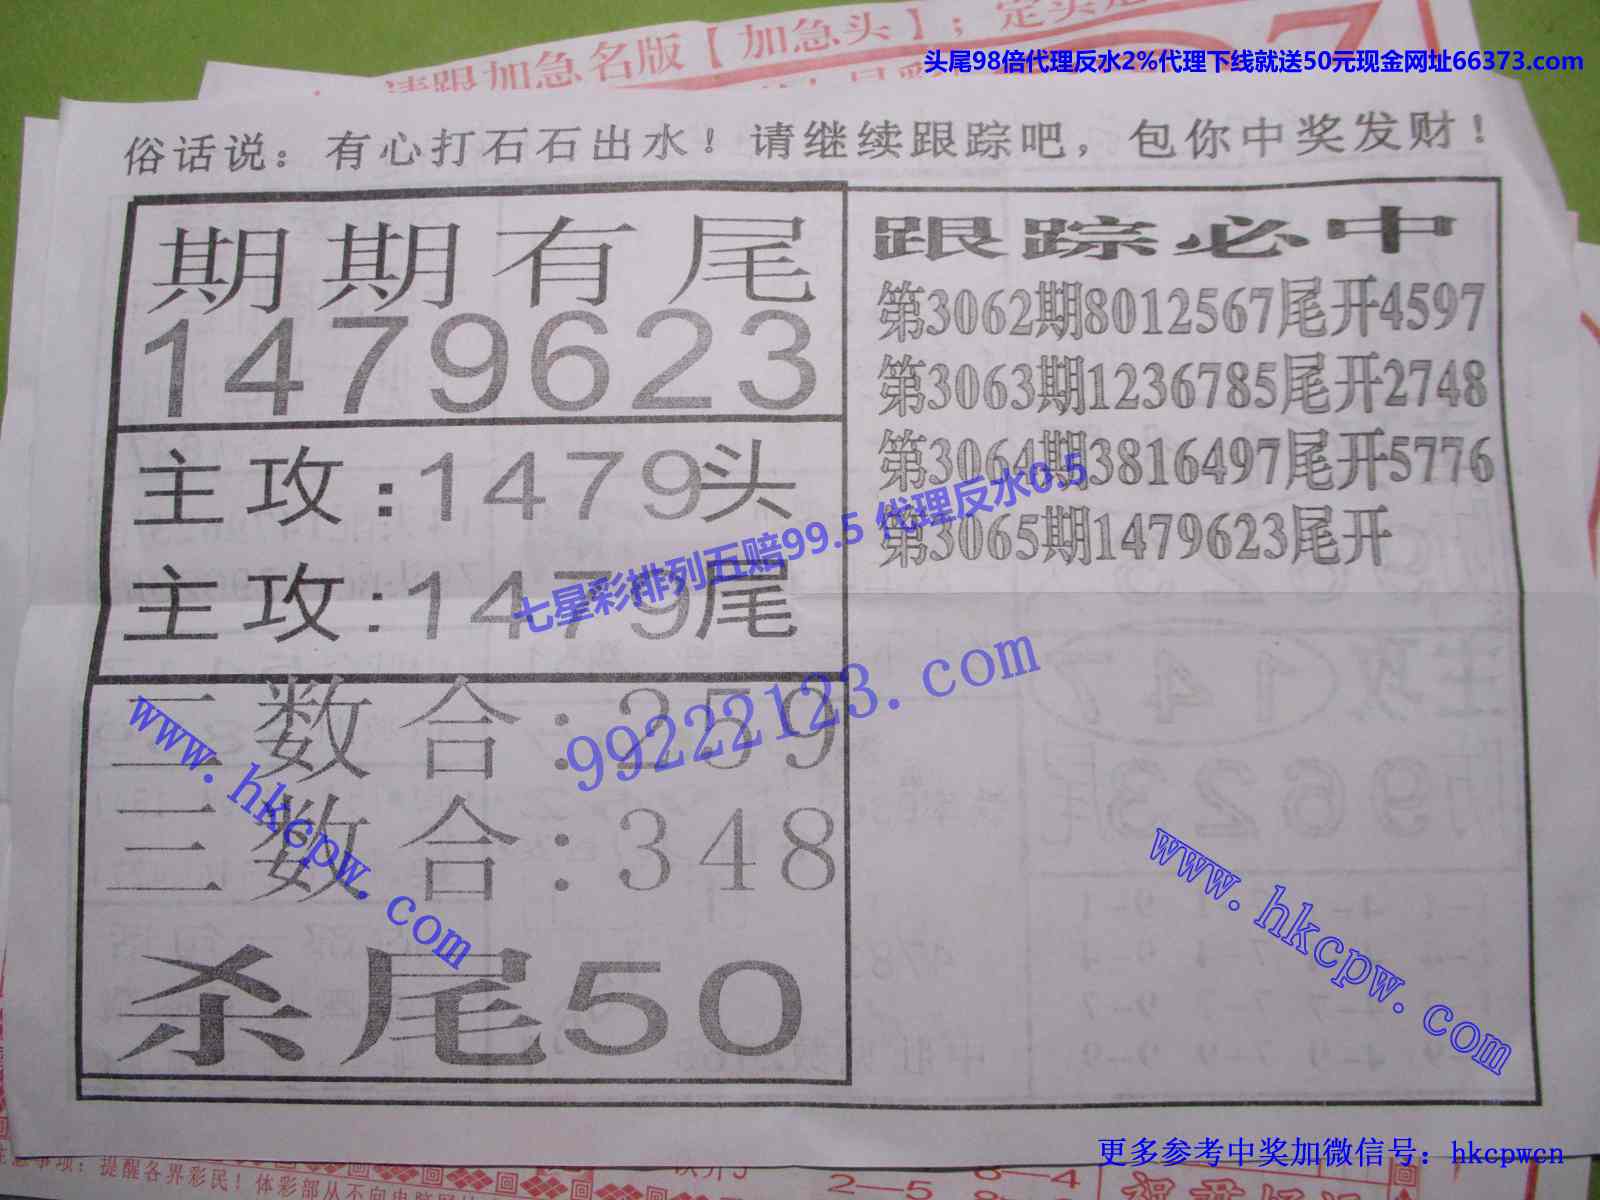 请跟加急名版【加急头】；定头尾
头尾98倍代理反水2%代理下线就送50元现金网址66373.com
俗话说：有心打石石出水！请继续跟踪吧，包你中奖发财！
期期有尾
1479623
主攻:1479头
主攻:1479尾
二数合:259
三数合:348
杀尾50
跟踪必中
第3062期8012567尾开4597
第3063期1236785尾开2748
第3064期3816497尾开5776
第3065期1479623尾开
七星彩排列五赔99.5 代理反水0.5
99222123.com
www.hkcpw.com
www.hkcpw.com
更多参考中奖加微信号：hkcpwcn
注意事项：提醒各界彩民！体彩部从不向
2—5
8—4